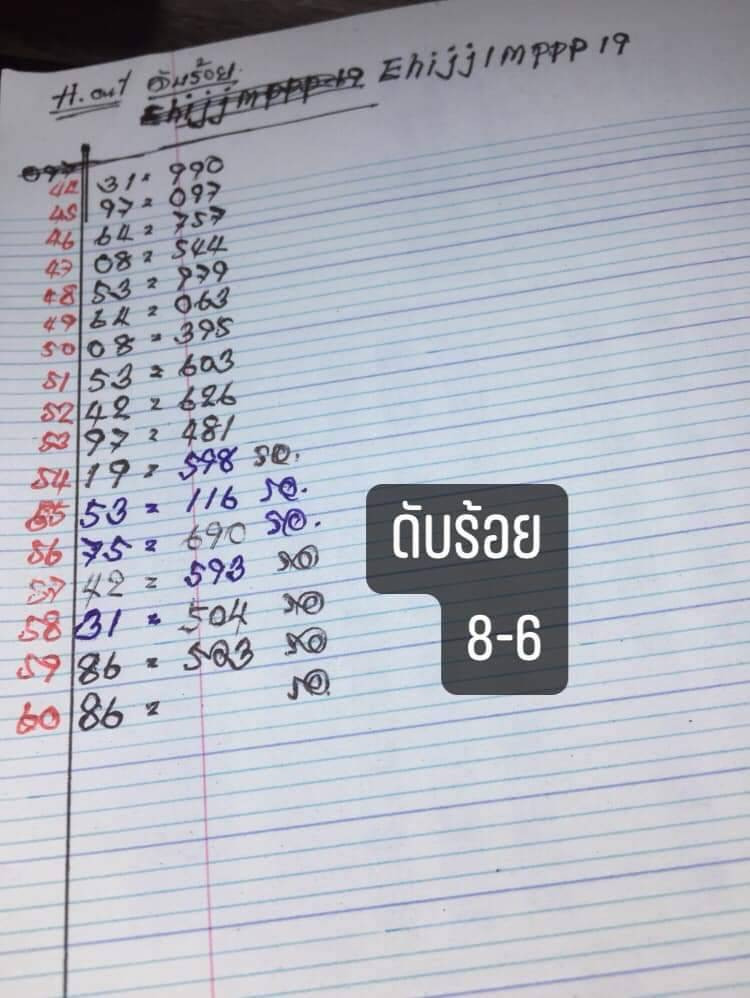 H. out ดับร้อย. Ehijj1mppp19
097
44 31 = 990
45 97 = 097
46 64 = 757
47 08 = 544
48 53 = 979
49 64 = 063
50 08 = 395
51 53 = 603
52 42 = 626
53 97 = 481
54 19 = 598 รอ.
55 53 = 116 รอ.
56 75 = 690 รอ.
57 42 = 593 รอ
58 31 = 504 รอ
59 86 = 523 รอ
60 86 = รอ
ดับร้อย
8-6